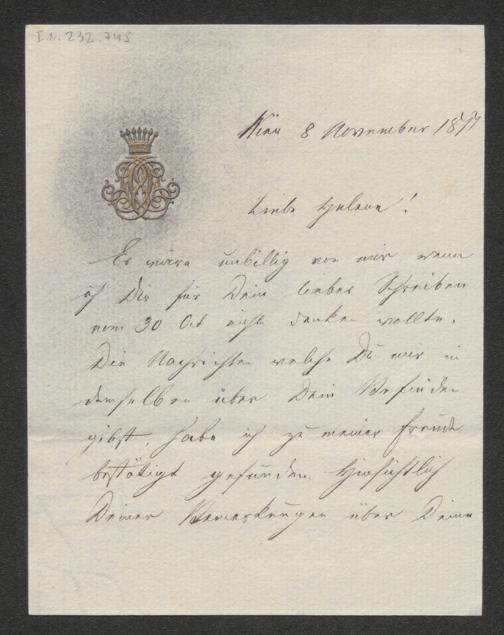 I.N. 232.745
Wien 8 November 1877
Liebe Helene!
Es wäre unbillig von mir wenn
ich Dir für Dein liebes Schreiben
vom 30 Oct nicht danken wollte.
Die Nachrichten welche Du mir in
demselben über Dein Befinden
gibst, habe ich zu meiner Freude
bestätigt gefunden. Hinsichtlich
Deiner Bemerkungen über Deine